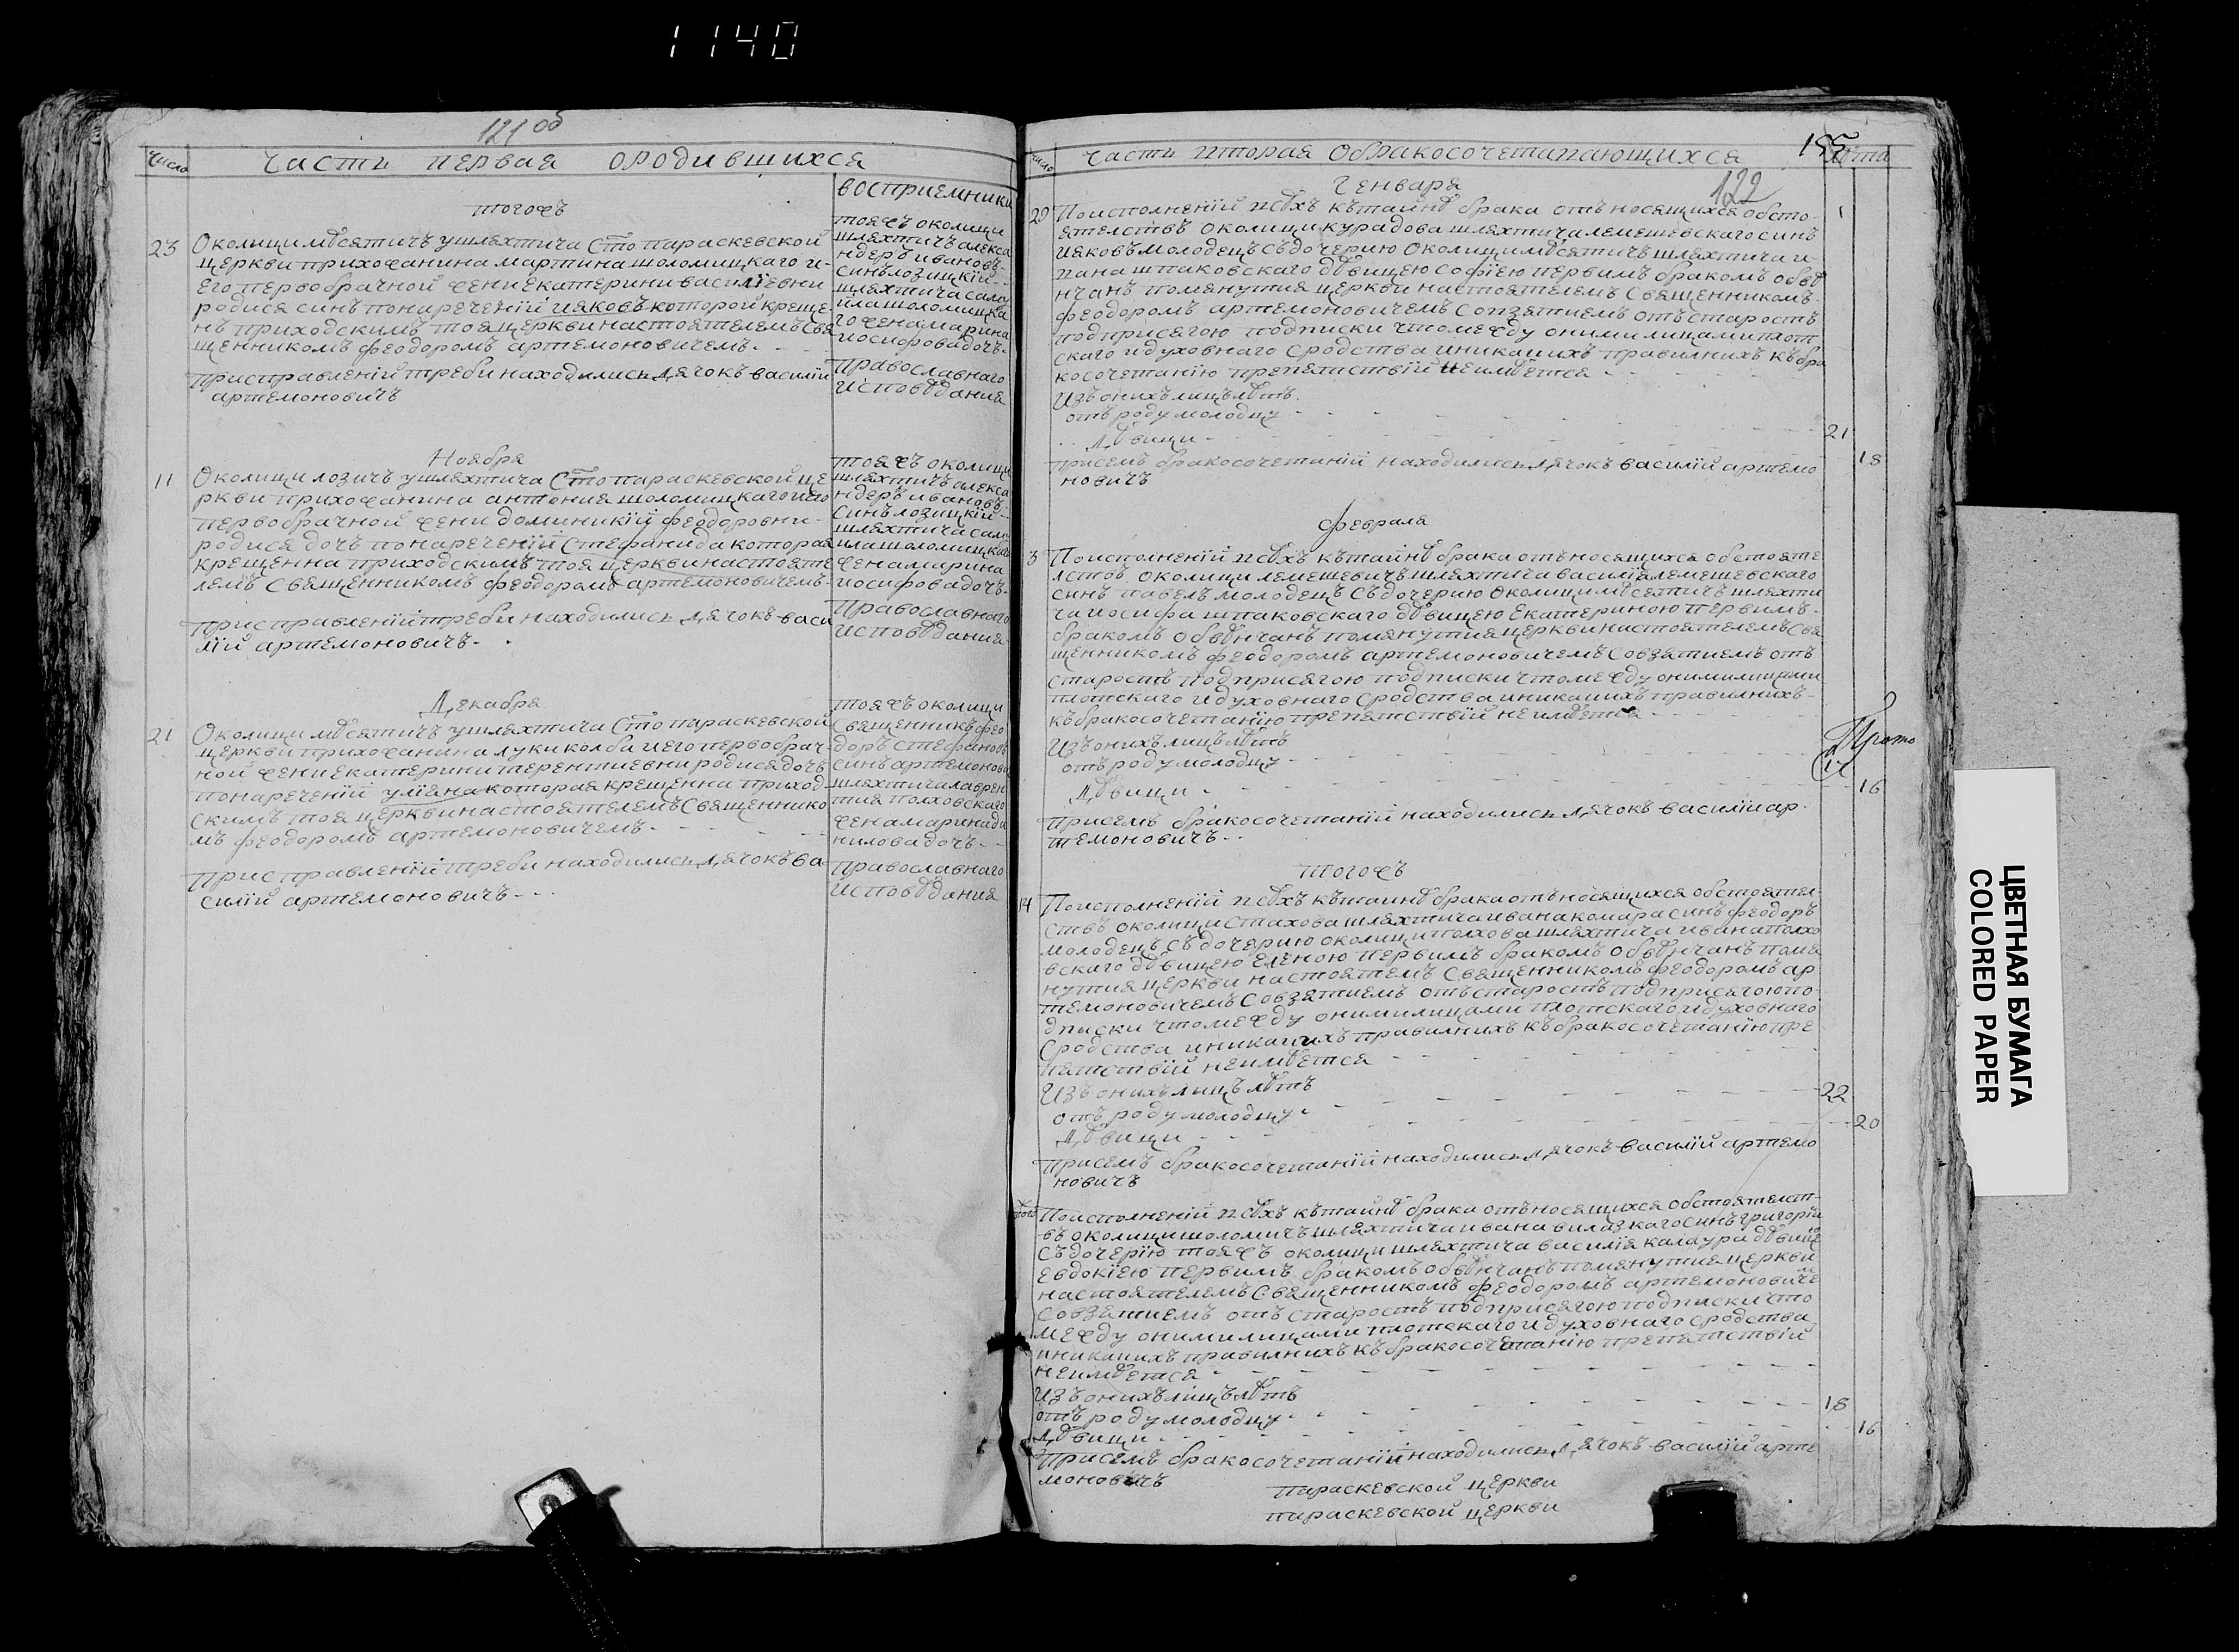 1140
121 об
Число
Часть первая о родившихся
восприемники
тогожъ
23
Околици мѣсятичъ у шляхтича Сто параскевской
щеркви прихожанина мартина шоломицкаго и
его первобрачной жени екатерини василіевни
родися синъ по нареченій иаковъ которой креще
нъ приходскимъ тоя щеркви настоятелемъ Свя
щенникомъ феодоромъ артемоновичемъ.
При справленій треби находились дячокъ василій
артемоновичъ
тояжъ околици
шляхтичъ алекса
ндеръ ивановъ
синъ лозицкій
шляхтича само
ила шоломицка
го жена марина
иосифова дочъ.
православнаго
исповѣданія
Ноября
11
Околици лозичъ у шляхтича Сто параскевской ще
ркви прихожанина антонія шоломицкаго и его
первобрачной жени доминикій феодоровни
родися дочъ по нареченій Стефанида которая
крещенна приходскимъ тоя щеркви настояте
лемъ Священникомъ феодоромъ артемоновичемъ
при справленій треби находились дячокъ васи
лій артемоновичъ.
тояжъ околици
шляхтичъ алекса
ндеръ ивановъ
Синъ лозицкій
шляхтича само
ила шоломицкаго
жена марина
иосифова дочъ.
Православнаго
исповѣданія
Декабря
21
Околици мѣсятичъ у шляхтича Сто параскевской
щеркви прихожанина луки колби и его первобрач
ной жени екатерини терентиевни родися дочъ
по нареченій уліяна которая крещенна приход
скимъ тоя щеркви настоятелемъ Священнико
мъ феодоромъ артемоновичемъ.
При справленій треби находились дячокъ ва
силій артемоновичъ
тояжъ околици
Священникъ фео
доръ Стефановъ
синъ артемонови
шляхтича лаврен
тия полховскаго
жена марина да
нилова дочъ.
православнаго
исповѣданія
Число
Часть вторая о бракосочетавающихся
155
лѣта
122
Генваря
29
По исполненій всѣхъ къ тайнѣ брака относящихся обсто
ятелствъ околици курадова шляхтича лемешевскаго синъ
иаковъ молодецъ съ дочерию околици мѣсятичъ шляхтича и
вана шпаковскаго дѣвицею Софіею первимъ бракомъ обвѣ
нчанъ помянутия щеркви настоятелемъ Священникомъ
феодоромъ артемоновичемъ Со взятиемъ отъ старостъ
подприсягою подписки что между оними лицами плот
скаго и духовнаго Сродства и никакихъ правилнихъ къ бра
косочетанію препятствій не имѣется
Изъ онихъ лицъ лѣтъ
отъ роду молодцу
21
дѣвици
18
При семъ бракосочетаній находились дячокъ василій артемо
новичъ
1
февраля
3
По исполненій всѣхъ къ тайнѣ брака относящихся обстояте
лствъ околици лемешевичъ шляхтича василія лемешевскаго
синъ павелъ молодецъ Съ дочерию околици мѣсятичъ шляхти
ча иосифа шпаковскаго дѣвицею екатериною первимъ
бракомъ обвѣнчанъ помянутия щеркви настоятелемъ Свя
щенникомъ феодоромъ артемоновичемъ Со взятиемъ отъ
старостъ подприсягою подписки что между оними лицами
плотскаго и духовнаго Сродства и никакихъ правилнихъ
къ бракосочетанію препятствій не имѣется
Изъ онихъ лицъ лѣтъ
отъ роду молодцу
дѣвици
16
При семъ бракосочетаній находились дячокъ василій ар
темоновичъ
Прото
тогожъ
14
По исполненій всѣхъ къ тайнѣ брака относящихся обстоятел
ствъ околици Стахова шляхтича ивана комара синъ феодоръ
молодецъ Съ дочерию околици полхова шляхтича ивана полхо
вскаго дѣвицею еленою первимъ бракомъ обвѣнчанъ помя
нутия щеркви настоятелемъ Священникомъ феодоромъ ар
темоновичемъ Со взятиемъ отъ старостъ подприсягою по
дписки что между оними лицами плотскаго и духовнаго
Сродства и никакихъ правилнихъ къ бракосочетанію пре
пятствій не имѣется
Изъ онихъ лицъ лѣтъ
отъ роду молодцу
22
дѣвици
20
При семъ бракосочетаній находились дячокъ василій артемо
новичъ
того
По исполненій всѣхъ къ тайнѣ брака относящихся обстоятелст
въ околици шоломичъ шляхтича ивана вилазкаго синъ григорій
Съ дочерію тояжъ околици шляхтича василія калаура дѣвице
Евдокіею первимъ бракомъ обвѣнчанъ помянутия щеркви
настоятелемъ Священникомъ феодоромъ артемоновиче
Со взятиемъ отъ старостъ подприсягою подписки что
между оними лицами плотскаго и духовнаго Сродства
и никакихъ правилнихъ къ бракосочетанію препятствій
не имѣется
Изъ онихъ лицъ лѣтъ
отъ роду молодцу
18
дѣвици
16
При семъ бракосочетаній находились дячокъ василій арте
моновичъ
параскевской щеркви
параскевской щеркви
ЦВЕТНАЯ БУМАГА
COLORED PAPER